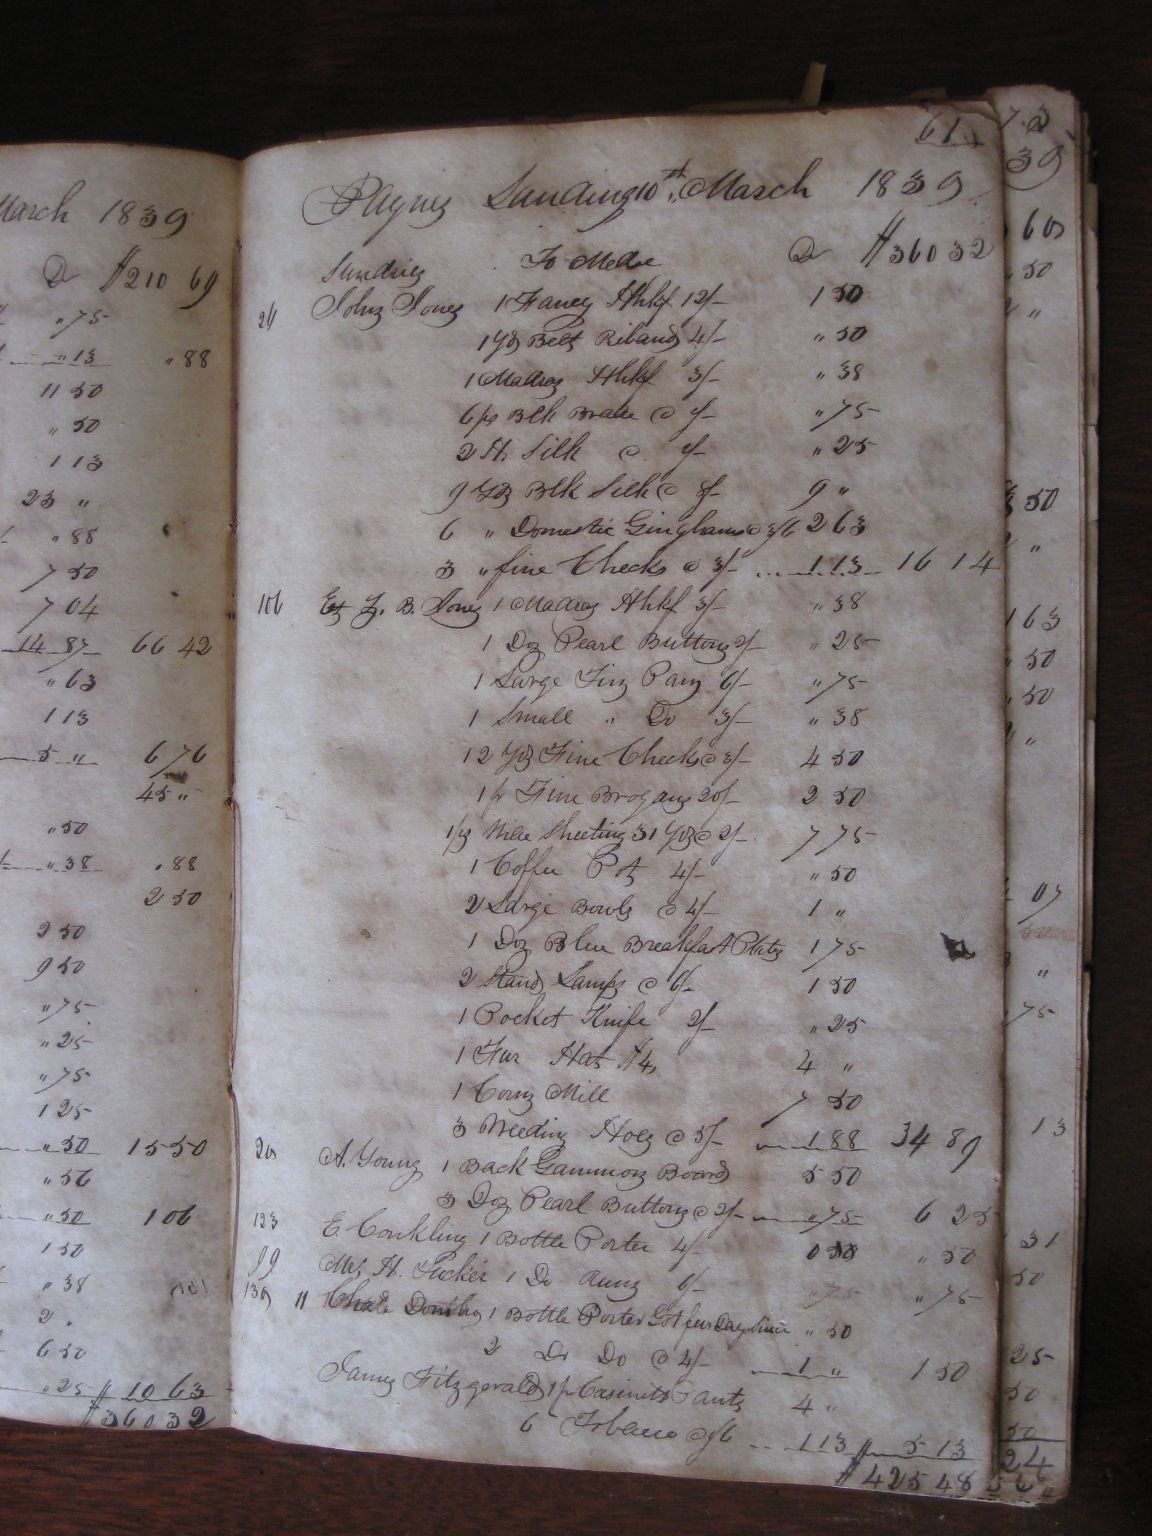 March 1839
D $210 69
" 75
" 13 " 88
11 50
" 50
1 13
23 "
" 88
7 50
7 04
14 87 66 42
" 63
1 13
5 " 6 76
45 "
" 50
" 38 " 88
2 50
2 50
9 50
" 75
" 25
" 75
1 25
" 50 15 50
" 56
" 50 1 06
1 50
" 38
2 "
6 50
" 25 $ 10 63
$360 32
61
Paynes Landing 10th March 1839
Sundries To Mdse D $360 32
24 John Jones 1 Fancy Hhkf 12/- 1 50
1 Yd Belt Riband 4/- " 50
1 Madras Hhkf 3/- " 38
6 ps Blk Braide @ 1/- " 75
2 Hs Silk @ 1/- " 25
9 Yds Blk Silk @ 8/- 9 "
6 " Domestic Ginghams @ 3/6 2 63
3 " fine Checks @ 3/- 1 13 16 14
106 Est J. B. Jones 1 Madras Hhkf 3/- " 38
1 Doz Pearl Buttons 2/- " 25
1 Large Tin Pan 6/- " 75
1 Small " Do 3/- " 38
12 Yds Fine Checks @ 3/- 4 50
1 pr Fine Brogans 20/- 2 50
1 ps Wide Sheeting 31 Yds @ 2/- 7 75
1 Coffee Pot 4/- " 50
2 Large Bowls @ 4/- 1 "
1 Doz Blue Breakfast Plates 1 75
2 Stand Lamps @ 6/- 1 50
1 Pocket Knife 2/- " 25
1 Fur Hat $4, 4 "
1 Corn Mill 7 50
3 Weeding Hoes @ 5/- 1 88 34 89
20 A. Young 1 Back Gammon Board 5 50
3 Doz Pearl Buttons @ 2/- " 75 6 25
123 E. Conkling 1 Bottle Porter 4/- 0 50 " 50
99 Mrs H. Tucker 1 Do 6/- " 75 " 75
130 11 1 Bottle Porter Got few Days Since " 50
2 Do Do @ 4/- 1 " 1 50
James Fitzgerald 1 pr Casinett Pants 4 "
6 Tobacco @ 1/6 1 13 $ 5 13
$425 48
72
39
60
50
"
50
"
1 63
" 50
" 50
"
07
"
75
13
31
50
25
50
50
24